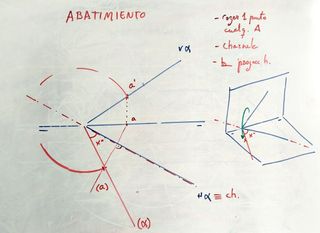 ABATIMIENTO
- coger 1 punto
cualq. A
- charnela
- proyecc h.
vα
a'
a
x°
x°
(a)
Hα ≡ ch.
(α)